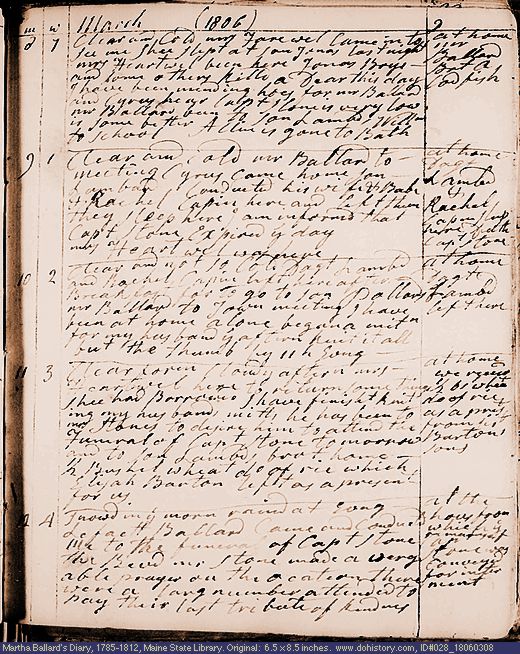 m w March (1806) 9
8 7 Clear and Cold mrs Farewel Came in to at home
see me Shee Slept at Son Jonas last night mr
mrs Heartwel been here Jonas Ballard
and some others killd a Bear this day Bot a
I have been mending hoes for mr Ballard Codfish
and Cyrus hears Capt Stone is very low
mr Ballard been to Son Lambds Wilm
is some better Allin is gone to Bath
to School
9 1 Clear and Cold mr Ballard to at home
meeting Cyrus Came home Son Sagt
Lambard Conducted his wife & Babe Lambd
& Rachel Capin here and left them Rachel
they sleep here am informd that Capin sleep
Capt Stone Expired ys day here
mrs Heartwel was here Capt Stone
10 2 Clear and not so Cold Sagt Lambd at home
and Rachel Capin left here after Sagt
Breakfast to go to Son Ballards Lambd
mr Ballard to Town meeting I have left here
been at home alone began a mitn
for my husband ys aftern knit it all
but the thumb by 11h Evng
11 3 Clear foren Clowdy aftern mrs at home
Heartwel here to return something we receiv
shee had Borrowed I have finisht knit wheat
ing my husbands mitts he has been to do of rice
mrs Stones to desire him to attend the as a presnt
Funeral of Capt Stone tomorrow from mr
and to Son Lambds brot home Bartons
½ Bushl wheat do of rice which Sons
Elijah Barton left as a present
for us
12 4 Snowd in morn raind at Evng at the
Ballard Came and Conduct house from
me to the funeral of Capt Stone which
the Revd mr Stone made a very Capt Stone was
able prayer on the ocation there Conveyd
were a long number attended to for inter
pay their last tribute of kindness ment
Martha Ballard's Diary, 1785-1812, Maine State Library. Original: 6.5 x 8.5 inches. www.dohistory.com, ID#028_18060308